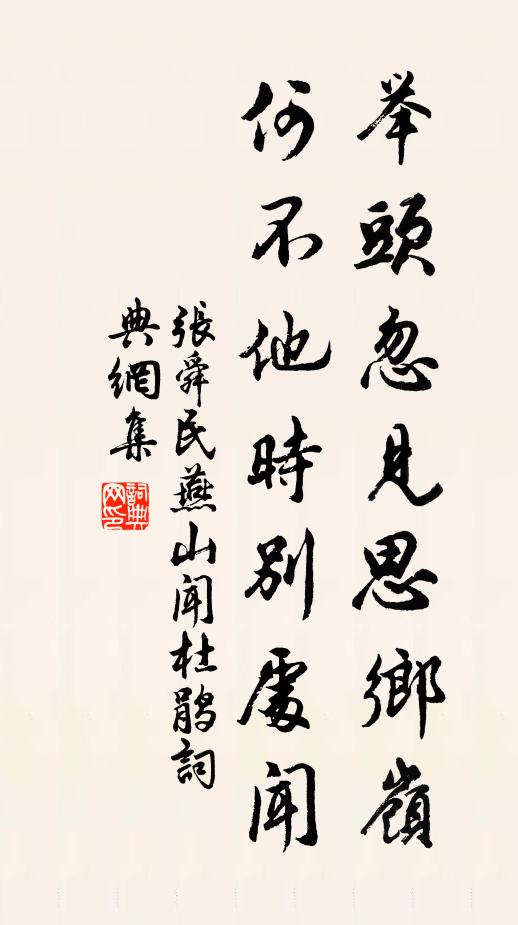 举頭忽見思鄉嶺
何不他時別處闻
張舜民燕山闻杜鹃詞
典網集
詞典
网印